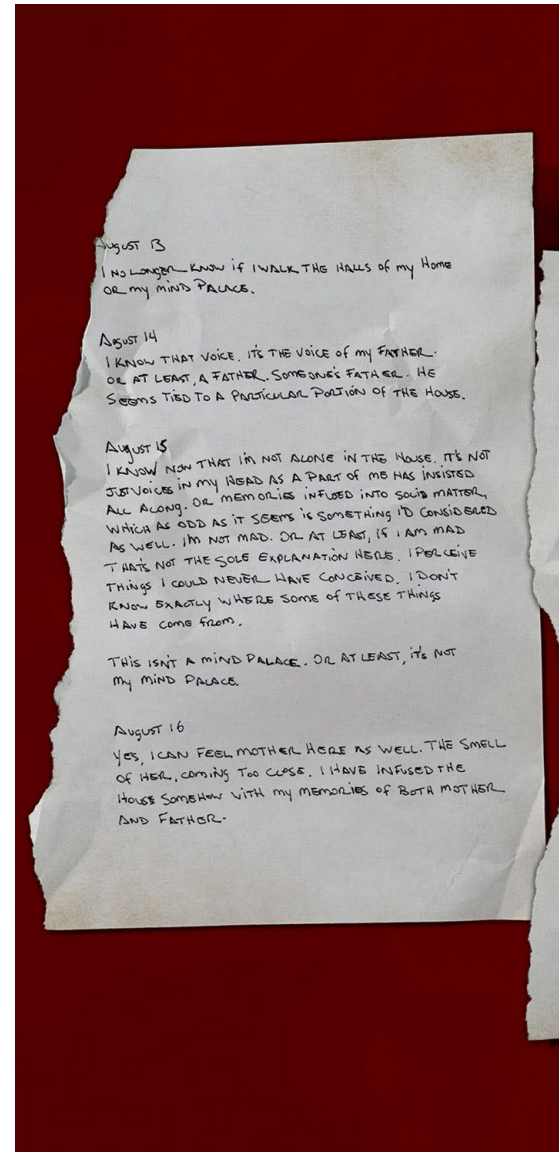 August 13
I no longer know if I walk the halls of my home
or my mind palace.
August 14
I know that voice. It's the voice of my father.
Or at least, a father. Someone's father. He
seems tied to a particular portion of the house.
August 15
I know now that I'm not alone in the house. It's not
just voices in my head as a part of me has insisted
all along. Or memories infused into solid matter,
which as odd as it seems is something I'd considered
as well. I'm not mad. Or at least, if I am mad
that's not the sole explanation here. I perceive
things I could never have conceived. I don't
know exactly where some of these things
have come from.
This isn't a mind palace. Or at least, it's not
my mind palace.
August 16
Yes, I can feel Mother here as well. The smell
of her, coming too close. I have infused the
house somehow with my memories of both mother
and father.